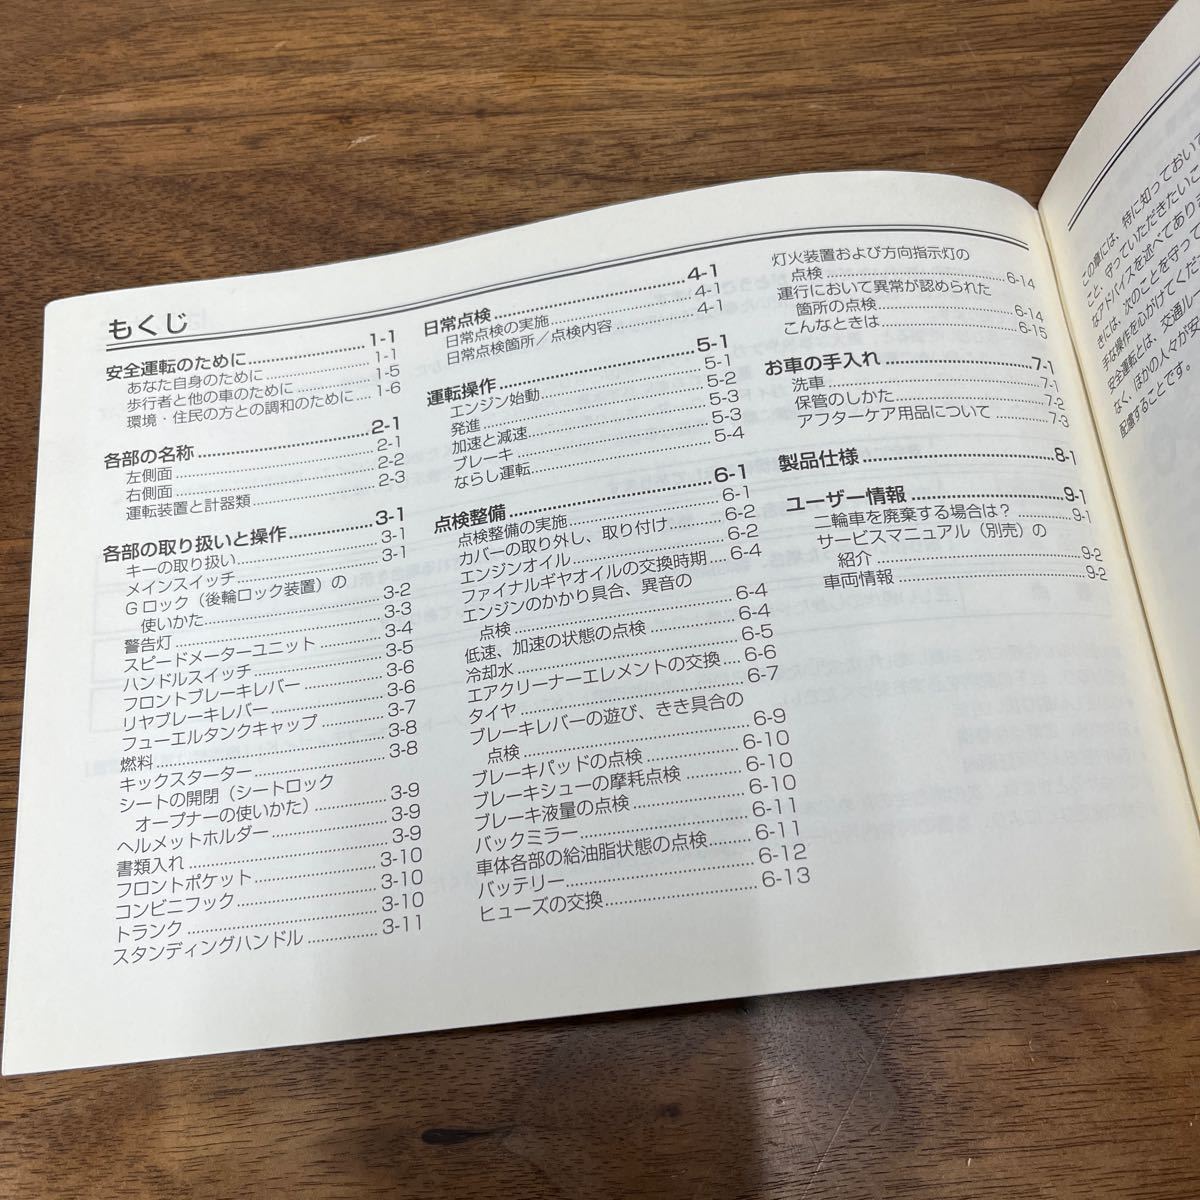 もくじ
安全運転のために 1-1
あなた自身のために 1-1
歩行者と他の車のために 1-5
環境・住民の方との調和のために 1-6
各部の名称 2-1
左側面 2-1
右側面 2-2
運転装置と計器類 2-3
各部の取り扱いと操作 3-1
キーの取り扱い 3-1
メインスイッチ 3-1
Gロック（後輪ロック装置）の
使いかた 3-2
警告灯 3-3
スピードメーターユニット 3-4
ハンドルスイッチ 3-5
フロントブレーキレバー 3-6
リヤブレーキレバー 3-6
フューエルタンクキャップ 3-7
燃料 3-8
キックスターター 3-8
シートの開閉（シートロック
オープナーの使いかた） 3-9
ヘルメットホルダー 3-9
書類入れ 3-9
フロントポケット 3-10
コンビニフック 3-10
トランク 3-10
スタンディングハンドル 3-11
日常点検 4-1
日常点検の実施 4-1
日常点検箇所／点検内容 4-1
運転操作 5-1
エンジン始動 5-1
発進 5-2
加速と減速 5-3
ブレーキ 5-3
ならし運転 5-4
点検整備 6-1
点検整備の実施 6-1
カバーの取り外し、取り付け 6-2
エンジンオイル 6-2
ファイナルギヤオイルの交換時期 6-4
エンジンのかかり具合、異音の
点検 6-4
低速、加速の状態の点検 6-4
冷却水 6-5
エアクリーナーエレメントの交換 6-6
タイヤ 6-7
ブレーキレバーの遊び、きき具合の
点検 6-9
ブレーキパッドの点検 6-10
ブレーキシューの摩耗点検 6-10
ブレーキ液量の点検 6-10
バックミラー 6-11
車体各部の給油脂状態の点検 6-11
バッテリー 6-12
ヒューズの交換 6-13
灯火装置および方向指示灯の
点検 6-14
運行において異常が認められた
箇所の点検 6-14
こんなときは 6-15
お車の手入れ 7-1
洗車 7-1
保管のしかた 7-2
アフターケア用品について 7-3
製品仕様 8-1
ユーザー情報 9-1
二輪車を廃棄する場合は？ 9-1
サービスマニュアル（別売）の
紹介 9-2
車両情報 9-2
この章には、特に知っておいて
こと、守っていただきたいこ
なアドバイスを述べてありま
きには、次のことを守って
手な操作を心がけてくだ
安全運転とは、交通ル
なく、ほかの人々が安
配慮することです。